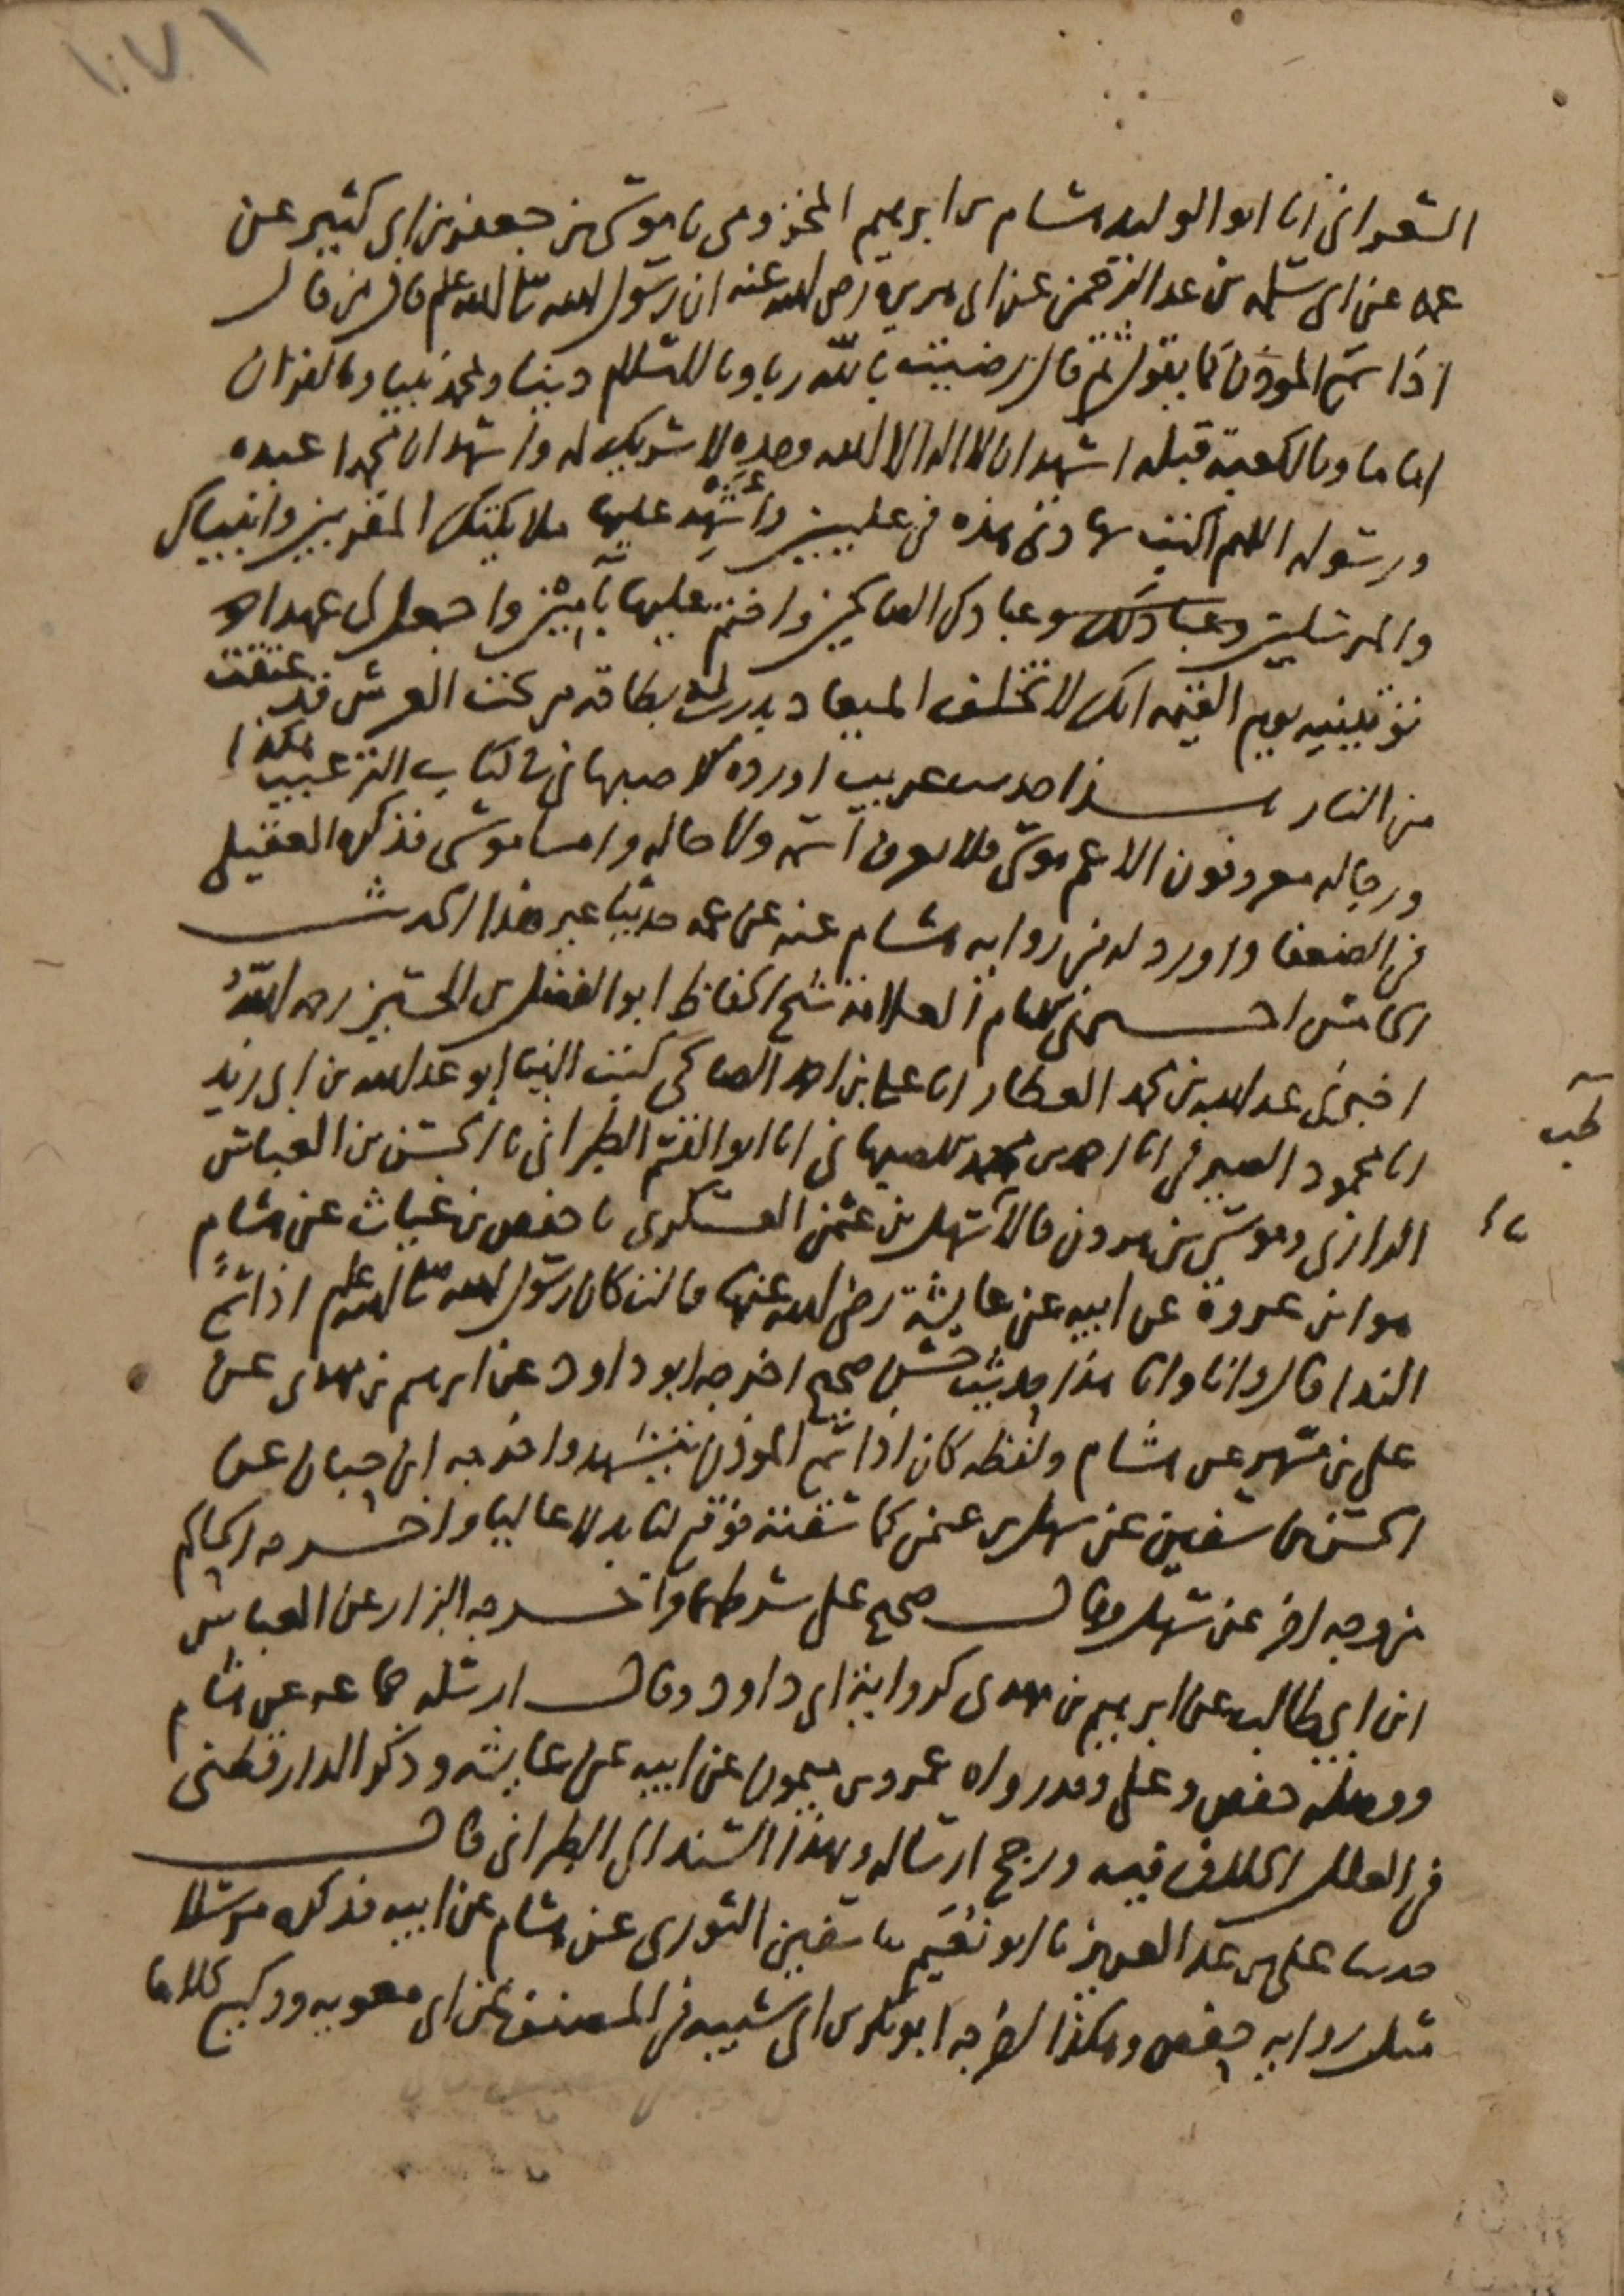 ١٠٧١
الشعراني انا ابو الوليد هشام بن ابرهيم المخزومي نا موسى بن جعفر بن ابي كثير عن
عمه عن ابي سلمة بن عبد الرحمن عن ابي هريرة رضي الله عنه ان رسول الله صلى الله عليه وسلم قال من قال
اذا سمع المؤذن كما يقول ثم قال رضيت بالله ربا وبالاسلام دينا وبمحمد نبيا وبالقران
اماما وبالكعبة قبلة اشهد ان لا اله الا الله وحده لا شريك له واشهد ان محمدا عبده
ورسوله اللهم اكتب شهادتي هذه في عليين واشهد عليها ملايكتك المقربين وانبياك
والمرسلين وعبادك وعبادك الصالحين واختم عليها بامين واجعل لي عهدا
توفينيه يوم القيمة انك لا تخلف الميعاد بدرت له بطاقة من تحت العرش فيه عتقت
من النار هذا حديث غريب اورده الاصبهاني في كتاب الترغيب هكذا
ورجاله معروفون الا عم موسى فلا يعرف اسمه ولا حاله واما موسى فذكره العقيلي
في الضعفا واورد له من رواية هشام عنه عن عمه حديثا غير هذا الحديث
العلامة شيخ الحفاظ ابو الفضل بن الحسين رحمه الله
اخبرني عبد الله بن محمد العطار انا علي بن احمد الصالحي كتب الينا ابو عبد الله بن ابي زيد
انا محمود الصيرفي انا احمد بن محمد الاصبهاني انا ابو القسم الطبراني نا الحسن بن العباس
طب
الرازي وموسى بن هرون قالا نا سهل بن عثمن العسكري نا حفص بن غياث عن هشام
هو ابن عروة عن ابيه عن عايشة رضي الله عنها قالت كان رسول الله صلى الله عليه وسلم اذا سمع
الندا قال وانا وانا هذا حديث حسن صحيح اخرجه ابو داود عن ابرهيم بن مهدي عن
علي بن مسهر عن هشام ولفظه كان اذا سمع المؤذن يتشهد واخرجه ابن حبان عن
الحسن بن سفين عن سهل بن عثمن كما سقته فوقع لنا بدلا عاليا واخرجه الحاكم
من وجه اخر عن سهل وقال صحيح على شرطهما واخرجه البزار عن العباس
ابن ابي طالب عن ابرهيم بن مهدي كرواية ابي داود وقال ارسله جماعة عن هشام
ووصله حفص وعلي وقد رواه عمرو بن ميمون عن ابيه عن عايشة وذكر الدارقطني
في العلل الخلاف فيه ورجح ارساله وبهذا السند الى الطبراني قال
حدثنا علي بن عبد العزيز نا ابو نعيم نا سفين الثوري عن هشام عن ابيه فذكره مرسلا
مثل رواية حفص وهكذا اخرجه ابو بكر بن ابي شيبه في المصنف عن ابي معويه ووكيع كلاهما